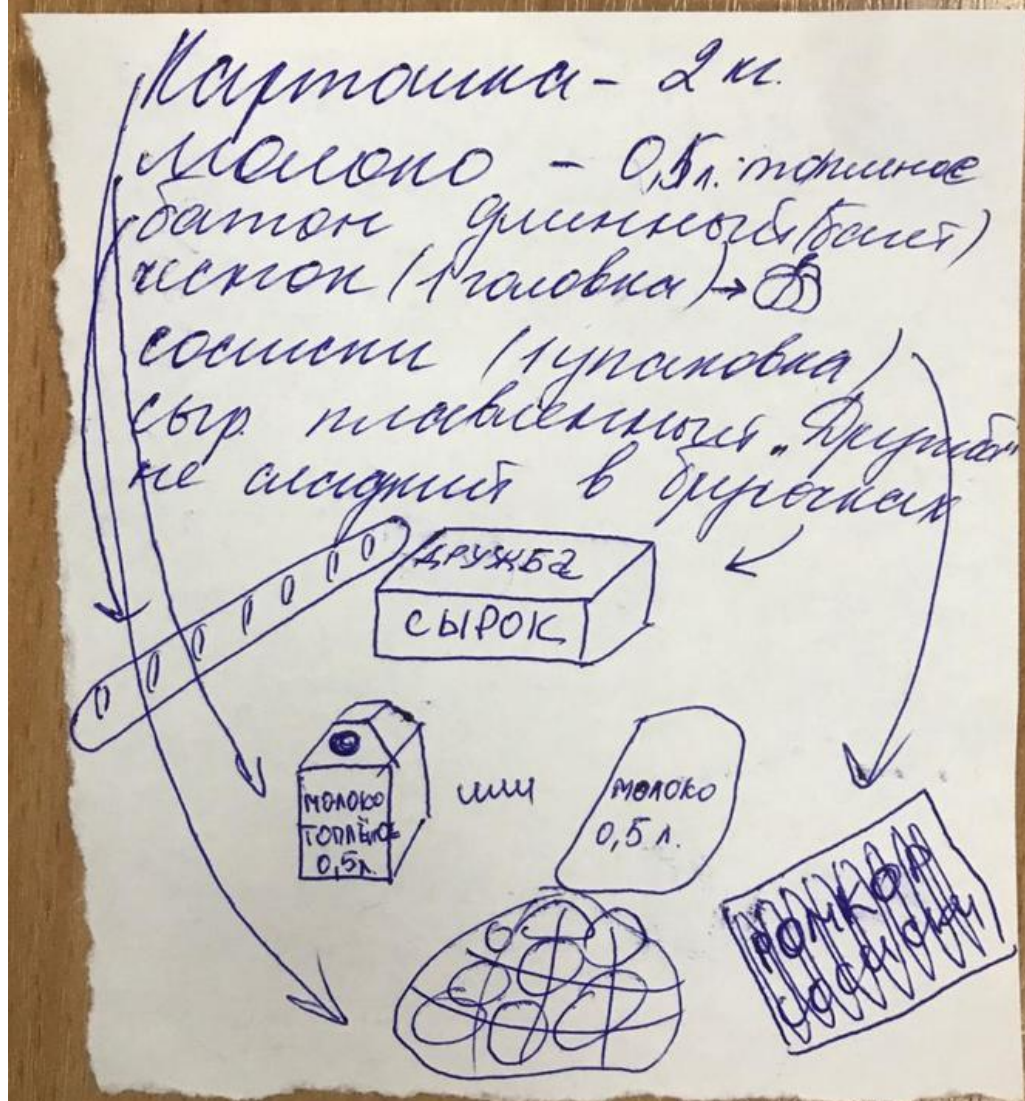 Картошка - 2 кг.
Молоко - 0,5л. топленое
батон длинный (багет)
чеснок (1 головка) →
сосиски (1 упаковка)
сыр плавленный „Дружба"
не сладкий в брусочках
ДРУЖБА
СЫРОК
МОЛОКО
ТОПЛЁНОЕ
0,5л.
или
МОЛОКО
0,5 л.
РОМКОР
сосиски